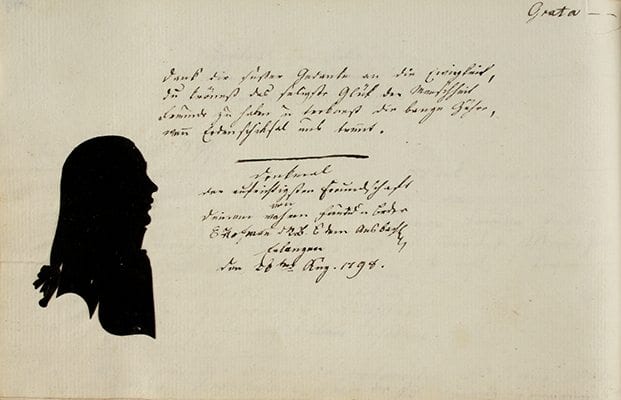 Grata
Dank dir süßer Gedanke an die Ewigkeit,
du krönest das seligste Glük der Menschheit
Freunde zu haben u. troknest die bange Zähre,
wenn Erdenschiksal uns trennt.
Denkmal
der aufrichtigsten Freundschaft
von
Deinem wahren Freund u Bruder
aus Ansbach
Erlangen
den 26ten Aug. 1798.